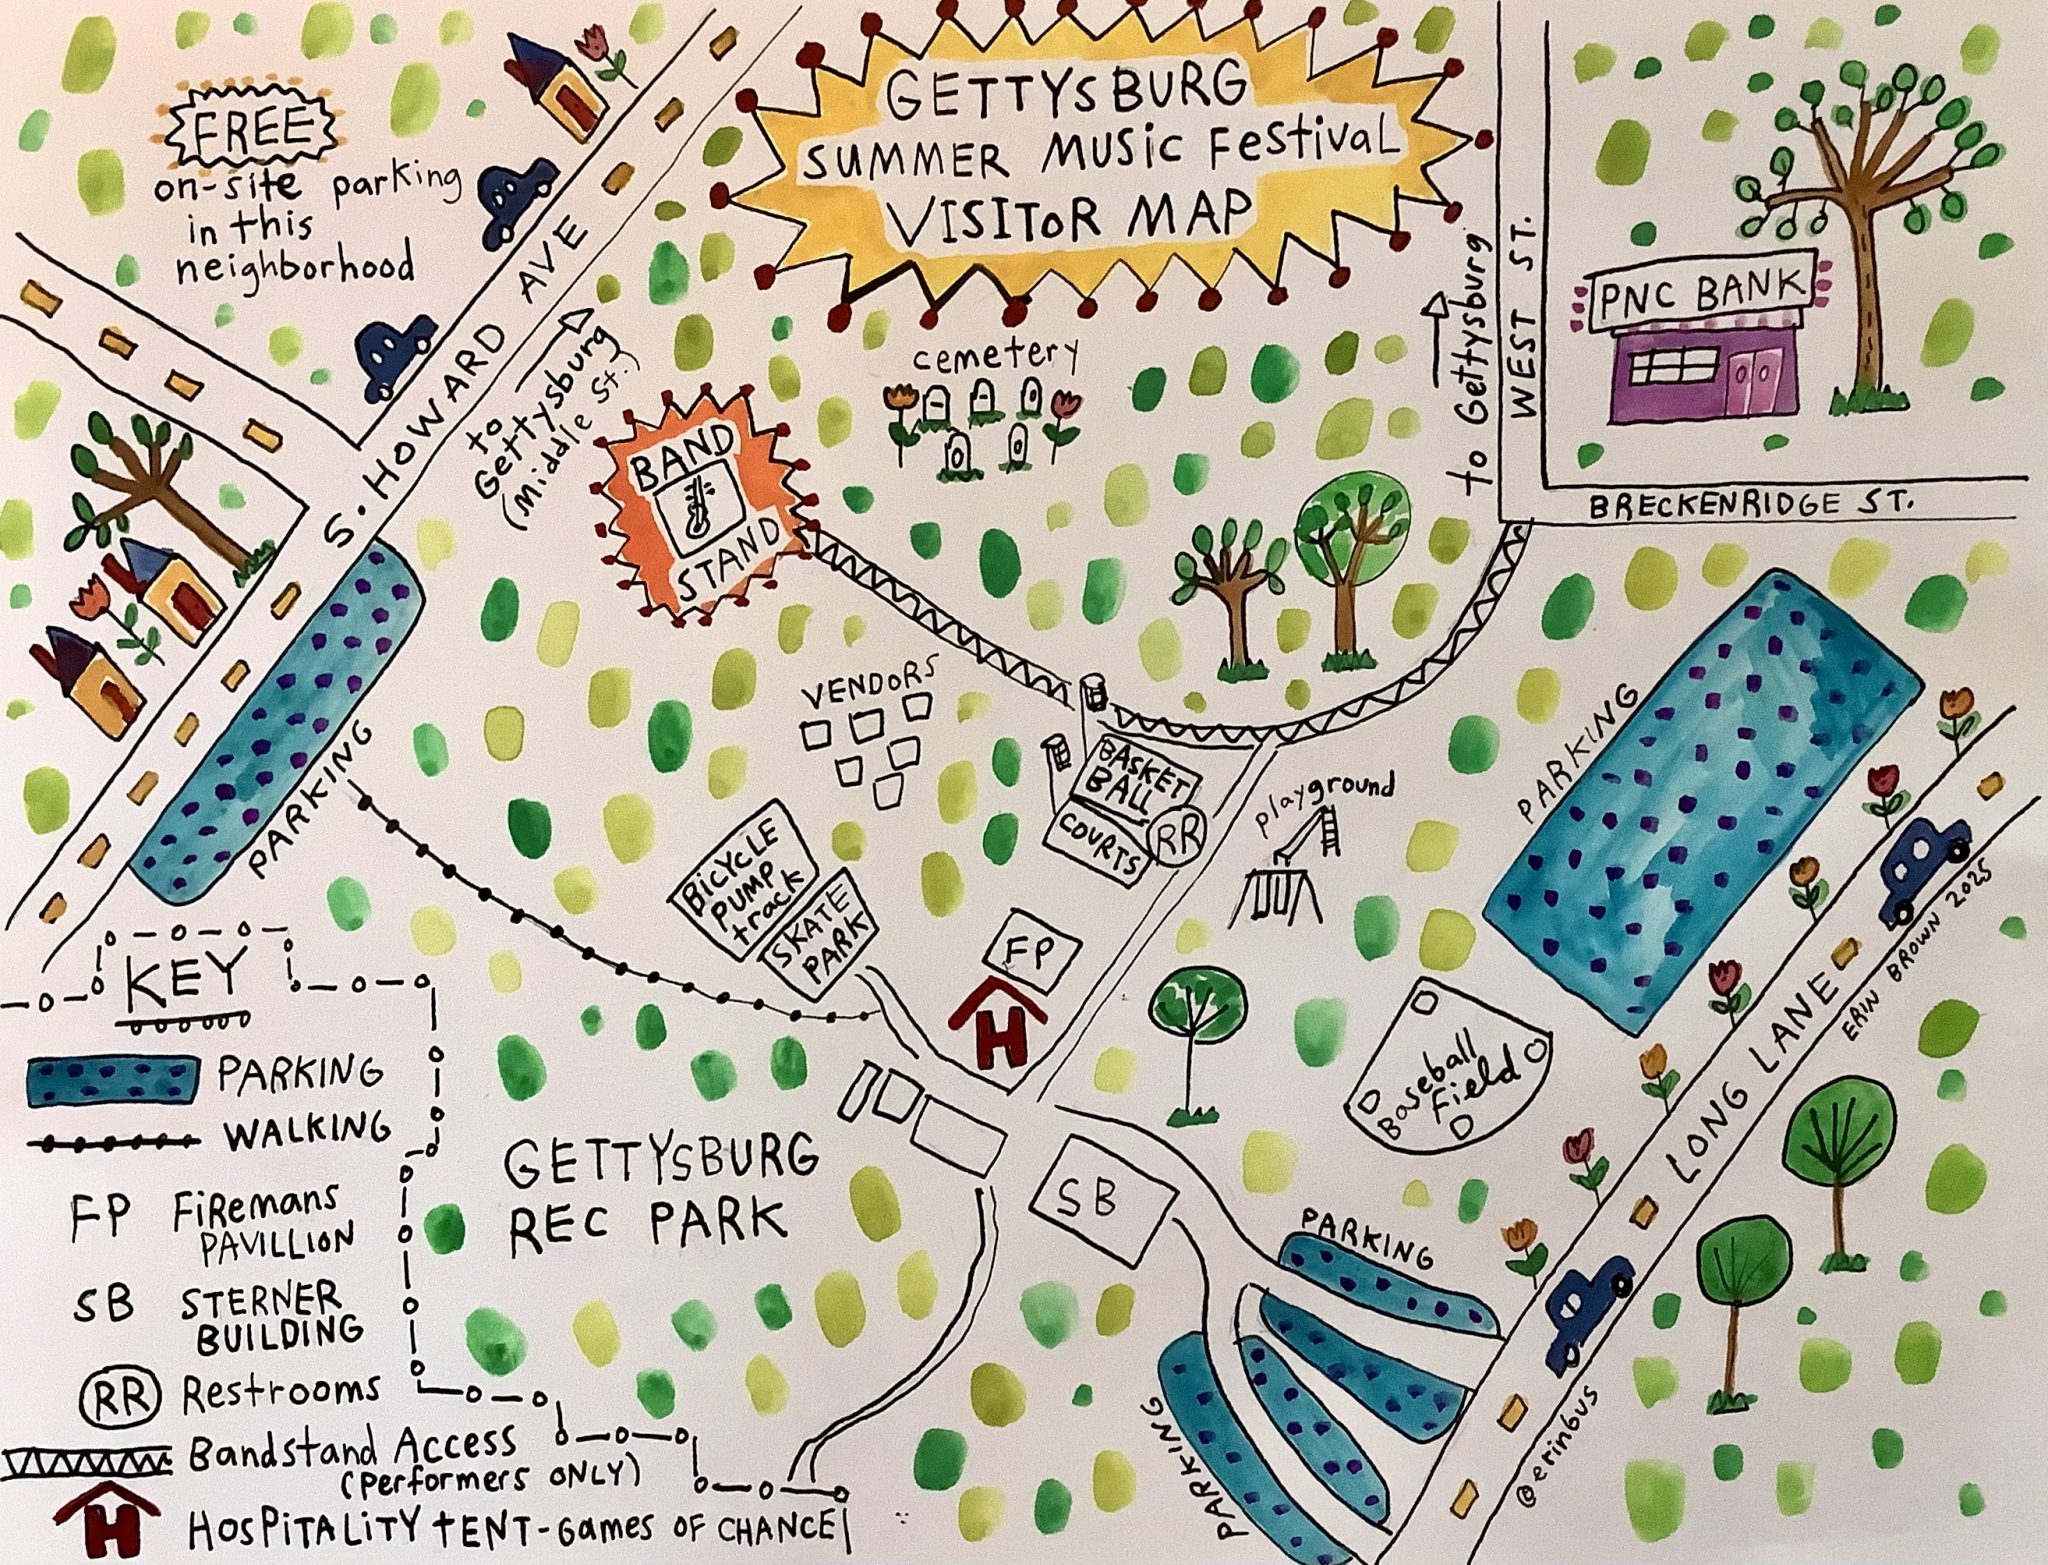 GETTYSBURG
SUMMER MUSIC FESTIVAL
VISITOR MAP
FREE
on-site parking
in this
neighborhood
S. HOWARD AVE
to
Gettysburg
(Middle St.)
BAND
STAND
cemetery
to Gettysburg
WEST ST.
PNC BANK
BRECKENRIDGE ST.
VENDORS
BASKET
BALL
COURTS
RR
playground
PARKING
PARKING
BICYCLE
PUMP
track
SKATE
PARK
FP
H
Baseball
Field
LONG LANE
ERIN BROWN 2025
GETTYSBURG
REC PARK
SB
PARKING
PARKING
@erinbus
KEY
PARKING
WALKING
FP FIREMANS
PAVILLION
SB STERNER
BUILDING
RR Restrooms
Bandstand Access
(Performers ONLY)
H HOSPITALITY tENT-Games OF CHANCE